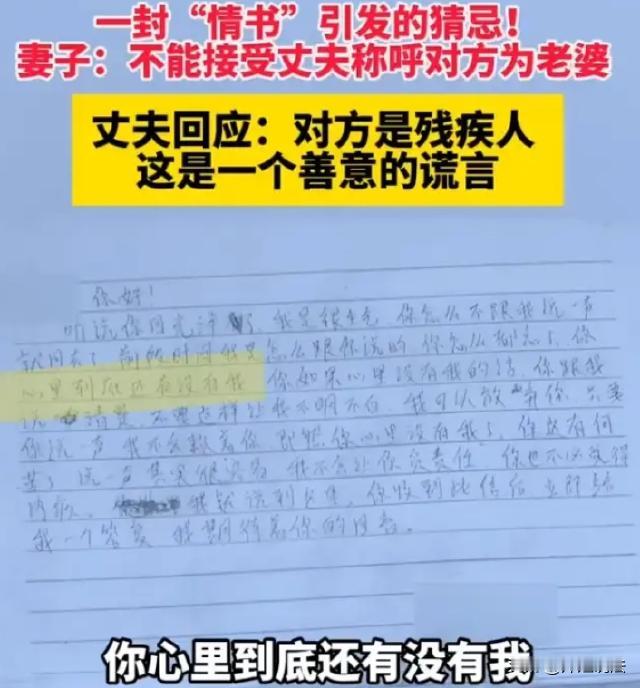 一封“情书”引发的猜忌！
妻子：不能接受丈夫称呼对方为老婆
丈夫回应：对方是残疾人
这是一个善意的谎言
你好！
听说你回 了，我是 你怎么不跟我说一声
就回去了 前段时间我是怎么跟你说的 你怎么都忘了，你
心里到底还有没有我 你如果心里没有我的话，你跟我
说 清楚，不要这样让我不明不白，我可以放弃你，只要
你说一声 我不会 着你 既然你心里没有我了，你又有何
苦了 说一声其实很 我不会让你负责任，你也不必觉得
内疚。 我就说到这里，你收到此信后 立即给
我一个答复 我 期待着你的 。
你心里到底还有没有我